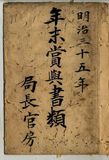 明治三十五年
年末賞與書類
局長官房